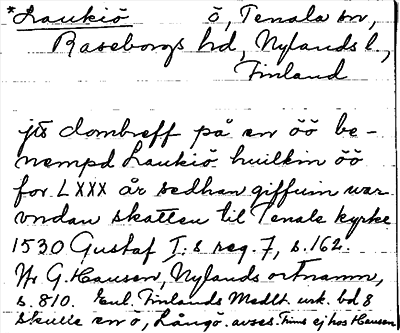 *Laukiö ö, Tenala sn,
Raseborgs hd, Nylands l.,
Finland
jtt dombreff på en öö be-
nempd Laukiö huilkin öö
for LXXX år sedhan giffuin war
vndan skatten til Tenale kyrke
1530 Gustaf I:s reg. 7, s. 162.
Jfr G. Hausen, Nylands ortnamn,
s. 810. Enl. Finlands Medlt. urk. bd 8
skulle en ö, Långö. avses. Finns ej hos Hausen